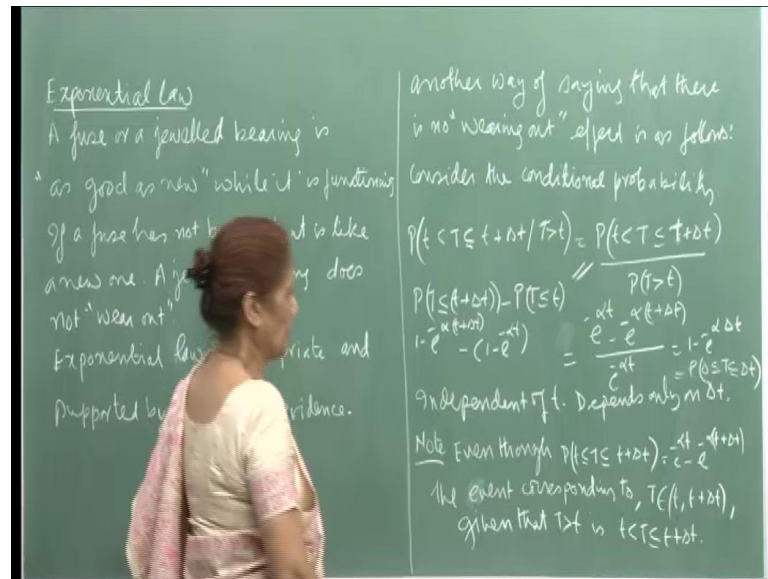 Exponential law
A fuse or a jewelled bearing is
"as good as new" while it is functioning
If a fuse has not it is like
a new one. A does
not "wear out".
Exponential and
supported by
another way of saying that there
is no "wearing out" effect is as follows:
Consider the conditional probability
P(t < T ≤ t + Δt / T > t) = P(t < T ≤ t + Δt) / P(T > t)
P(T ≤ (t + Δt)) - P(T ≤ t)
1 - e^{-α(t+Δt)} - (1 - e^{-αt}) = (e^{-αt} - e^{-α(t+Δt)}) / e^{-αt} = 1 - e^{-αΔt}
= P(0 ≤ T ≤ Δt)
Independent of t. Depends only on Δt.
Note Even though P(t ≤ T ≤ t + Δt) = e^{-αt} - e^{-α(t+Δt)}
The event corresponding to, T ∈ (t, t + Δt),
given that T > t is t < T ≤ t + Δt.